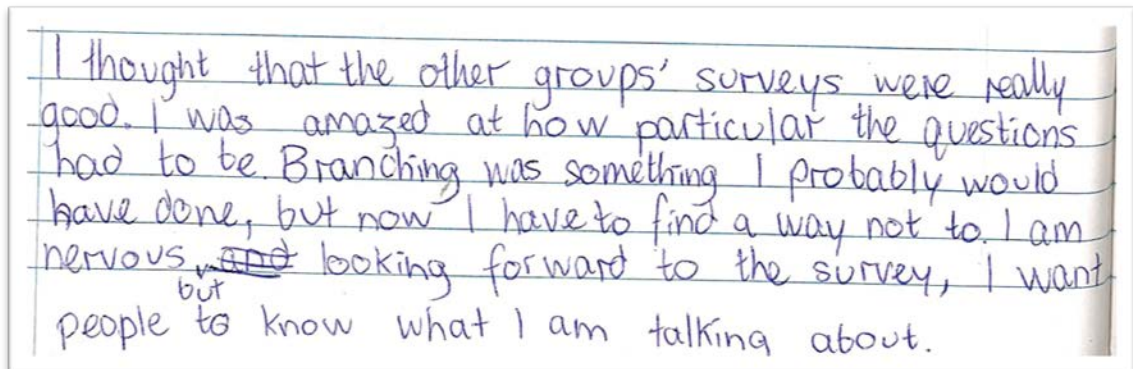 I thought that the other groups' surveys were really
good. I was amazed at how particular the questions
had to be. Branching was something I probably would
have done, but now I have to find a way not to. I am
nervous but looking forward to the survey, I want
people to know what I am talking about.